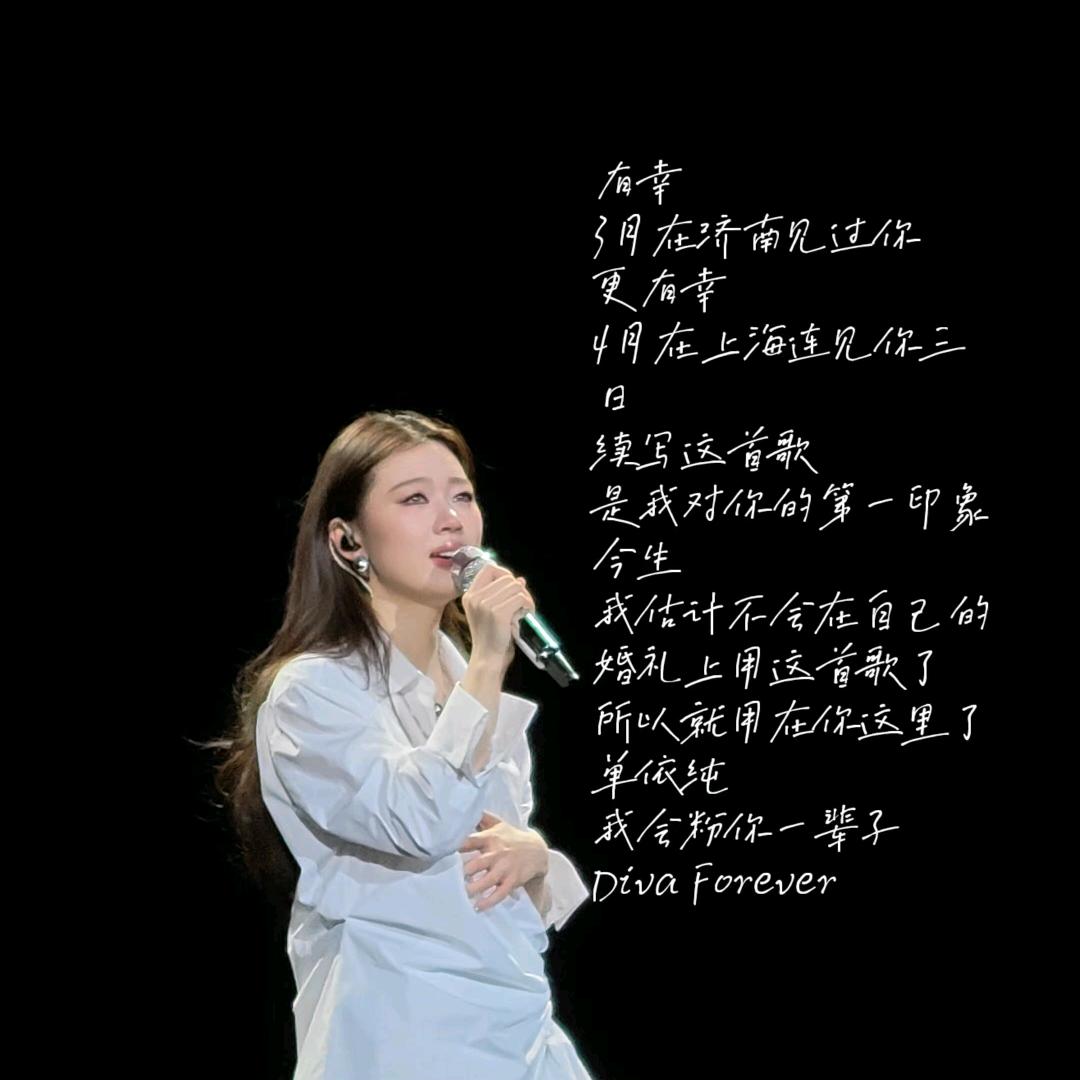 有幸
3月在济南见过你
更有幸
4月在上海连见你三
日
续写这首歌
是我对你的第一印象
今生
我估计不会在自己的
婚礼上用这首歌了
所以就用在你这里了
单依纯
我会粉你一辈子
Diva Forever